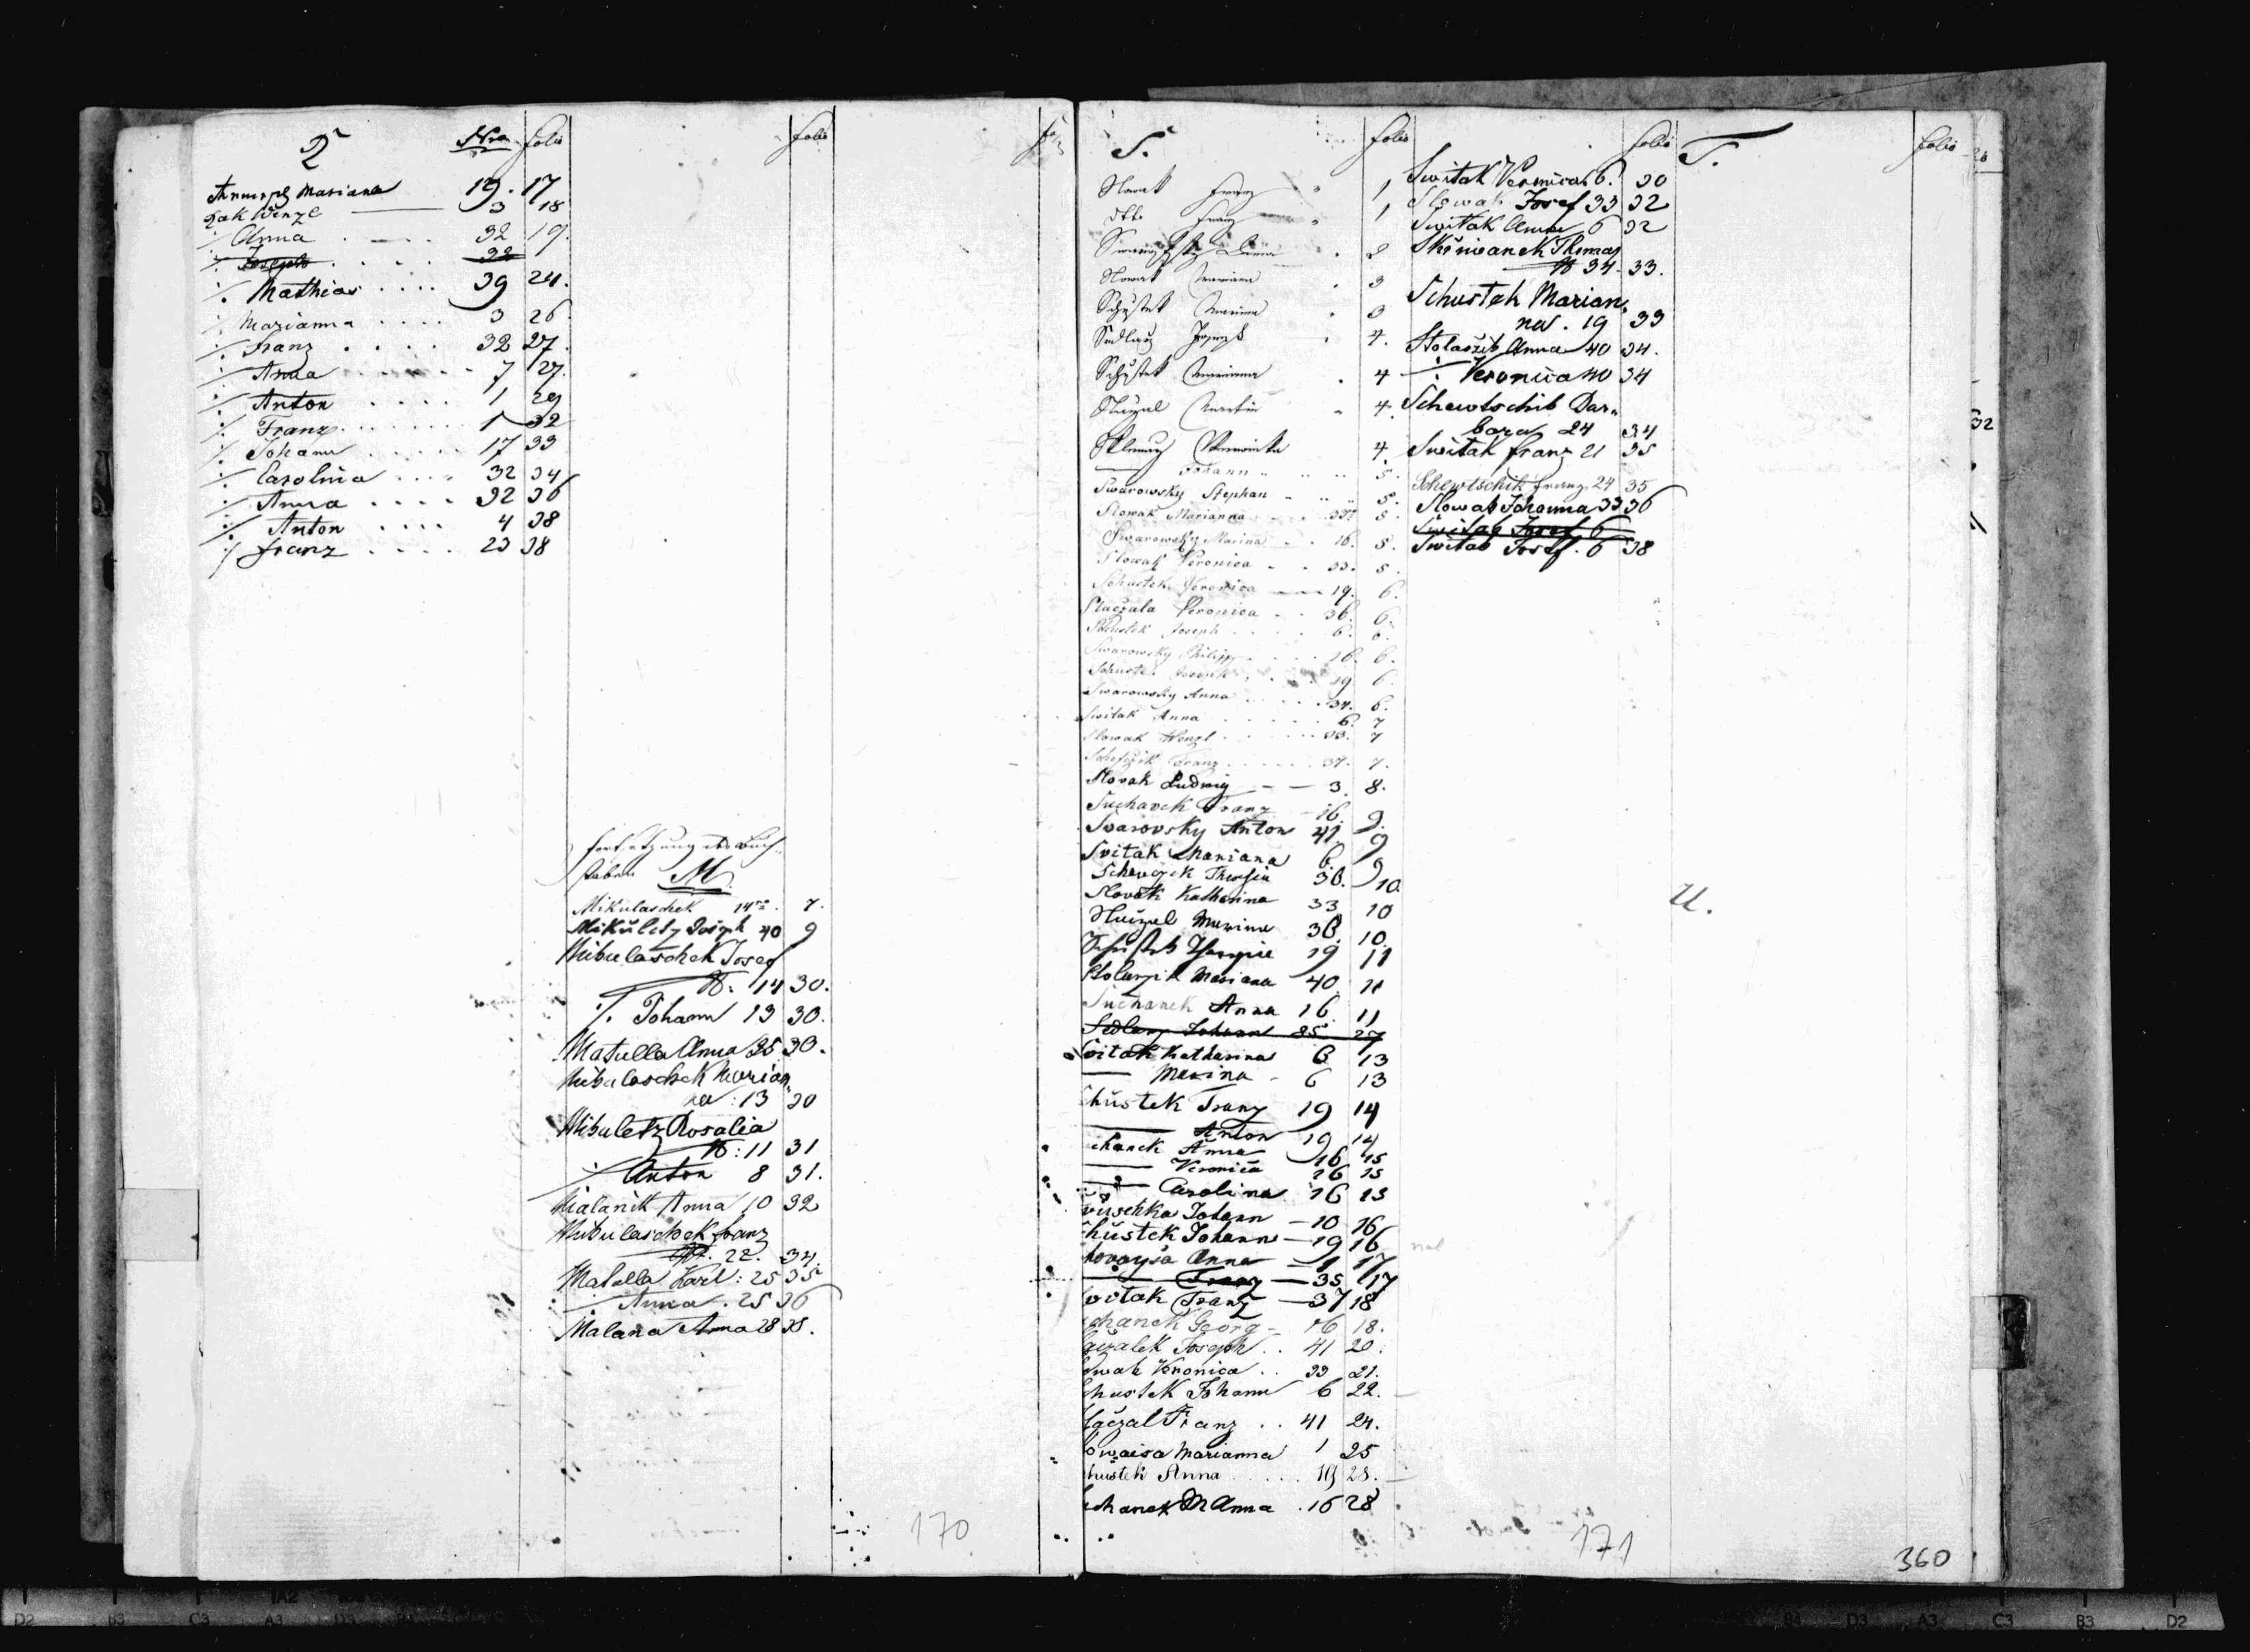 Nro folio
Mariana 19. 17
Žak Wenzl 3 18
Anna 32 19.
Joseph 32
Mathias 39 24.
Marianna 3 26
Franz 32 27.
Anna 7 27.
Anton 1 29
Franz 1 32
Johann 17 33
Carolina 32 34
Anna 32 36
Anton 4 38
Franz 23 38
folio
Fortsetzung des Buch„
staben M
Mikulaschek 14 7.
Mikuletz Joseph 40 9
Mikulaschek Josef
N: 14 30.
Johann 13 30.
Matulla Anna 35 30.
Mikulaschek Marian„
na: 13 30
Mikuletz Rosalia
N: 11 31
Anton 8 31.
Malanik Anna 10 32
Mikulaschek Franz
N. 22. 34.
Matulla Karl: 25 35
Anna. 25 36
Malana Anna 28 38.
170
S. folio
Franz 1
Franz 1
Nowak Marianna 3
Schustek Marina 3
Sedlarz Joseph 4.
Schustek Marianna 4
Martin 4.
4.
Johann 5.
Swarowsky Stephan 5.
Slowak Marianna 33. 5.
Swarowsky Marina 16. 5.
Slowak Veronica 33. 5.
Schustek Veronica 19. 6.
Veronica 36. 6.
Schustek Joseph 6. 6.
Swarowsky Philipp 16. 6.
Schustek Joseph 19. 6.
Swarowsky Anna 34. 6.
Switak Anna 6. 7
Slowak Wenzl 33. 7
Franz 37. 7.
Slovak Ludwig 3. 8.
Suchanek Franz 16. 9.
Svarovsky Anton 41. 9
Svitak Mariana 6. 9
Theresia 36. 10.
Slovak Katharina 33 10
Marina 36. 10.
Schustek Theresie 19 11
Mariana 40. 11
Suchanek Anna 16. 11
Sedlarz Johann 85 27
Svitak Katharina 6 13
Marina 6 13
hustek Franz 19 14
Anton 19 14
chanek Anna 16 15
Veronica 16 15
Carolina 16 15
uschka Johann 10 16
hustek Johann 19 16
Anna 1 17
Franz 35 17
vitak Franz 37 18
chanek Georg 16 18.
Joseph 41 20.
owak Veronica 33 21.
hustek Johann 6 22.
Franz 41 24.
owaisa Marianna 1 25
hustek Anna 19 28.
chanek M Anna 16 28
folio
Switak Veronica 6. 30
Slowak Josef 33 32
Switak Anna 6 32
Skřiwanek Thomas
N 34. 33.
Schustek Marian„
na. 19 33
Anna 40 34.
Veronica 40 34
Schewtschik Bar„
bara 24 34
Switak Franz 21 35
Schewtschik Franz 24 35
Slowak Johanna 33 36
Switak Josef 6
Switak Josef. 6 38
T. folio
U.
171
360